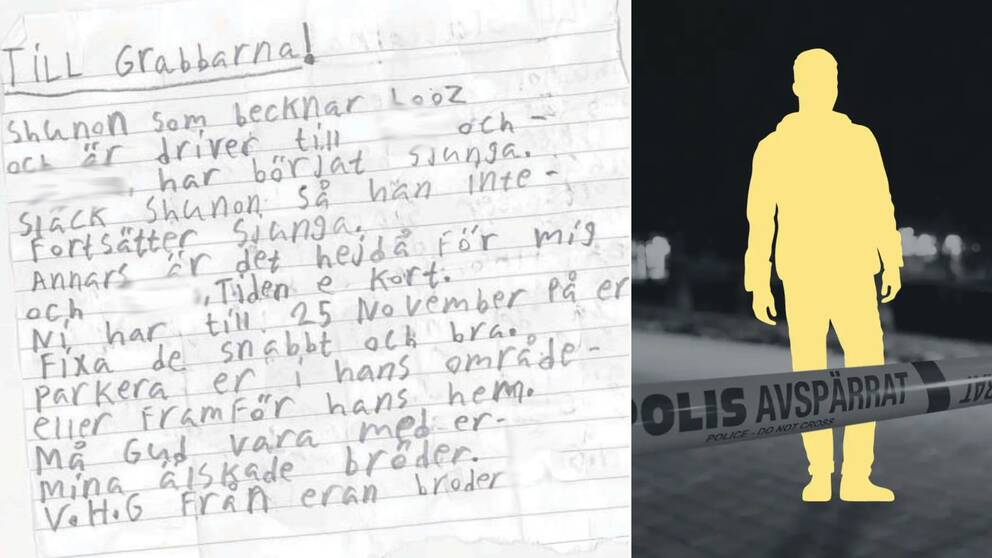 TiLL Grabbarna!
Shunon som becknar Looz
och är driver till och-
har börjat sjunga.
Släck shunon så han inte-
Fortsätter sjunga.
Annars är det hejdå För mig
och ,Tiden e kort.
Ni har till 25 November på er
Fixa de snabbt och bra.
parkera er i hans område-
eller framför hans hem.
Må Gud vara med er-
mina älskade bröder.
V.H.G Från eran broder
POLIS AVSPÄRRAT
POLICE - DO NOT CROSS